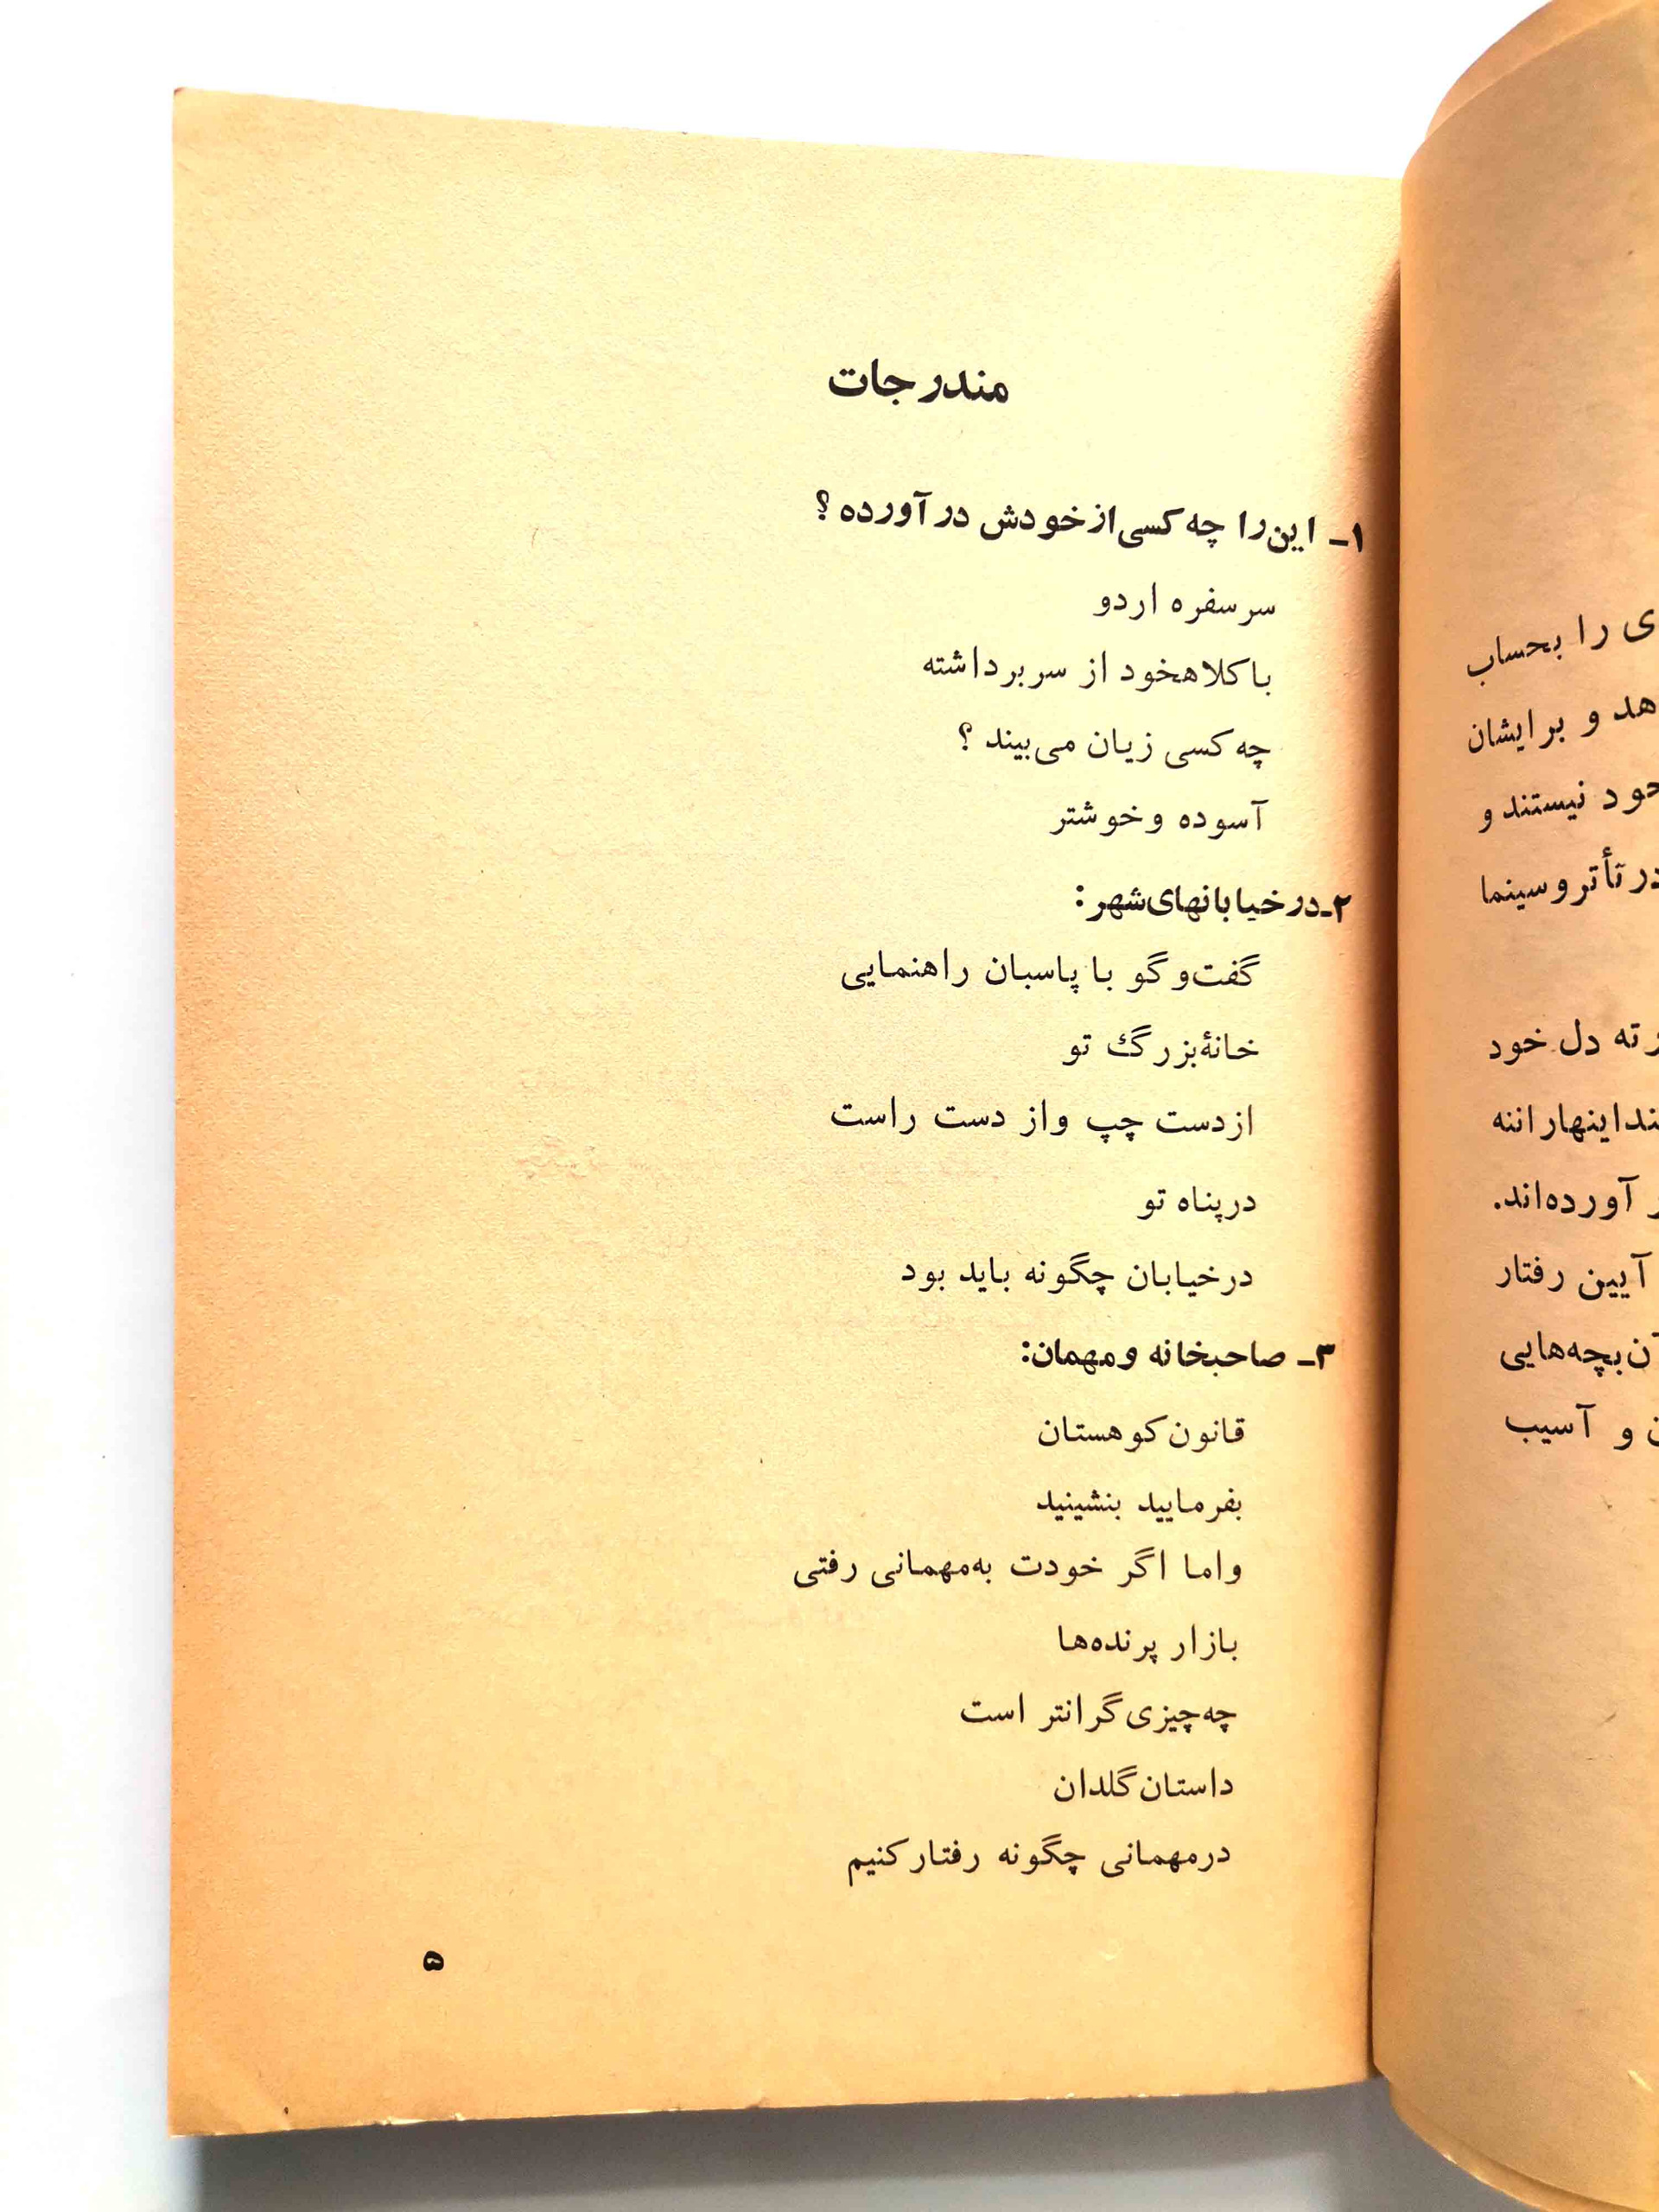 مندرجات
۱- این را چه کسی از خودش در آورده ؟
سر سفره اردو
با کلاهخود از سر برداشته
چه کسی زیان می‌بیند ؟
آسوده و خوشتر
۲- در خیابانهای شهر :
گفت و گو با پاسبان راهنمایی
خانهٔ بزرگ تو
از دست چپ و از دست راست
در پناه تو
در خیابان چگونه باید بود
۳- صاحبخانه و مهمان :
قانون کوهستان
بفرمایید بنشینید
و اما اگر خودت به‌مهمانی رفتی
بازار پرنده‌ها
چه چیزی گرانتر است
داستان گلدان
در مهمانی چگونه رفتار کنیم
۵
ی را بحساب
و برایشان
نیستند و
در تأتر و سینما
ته دل خود
اینهارا ننه
آورده‌اند.
آیین رفتار
بچه‌هایی
و آسیب